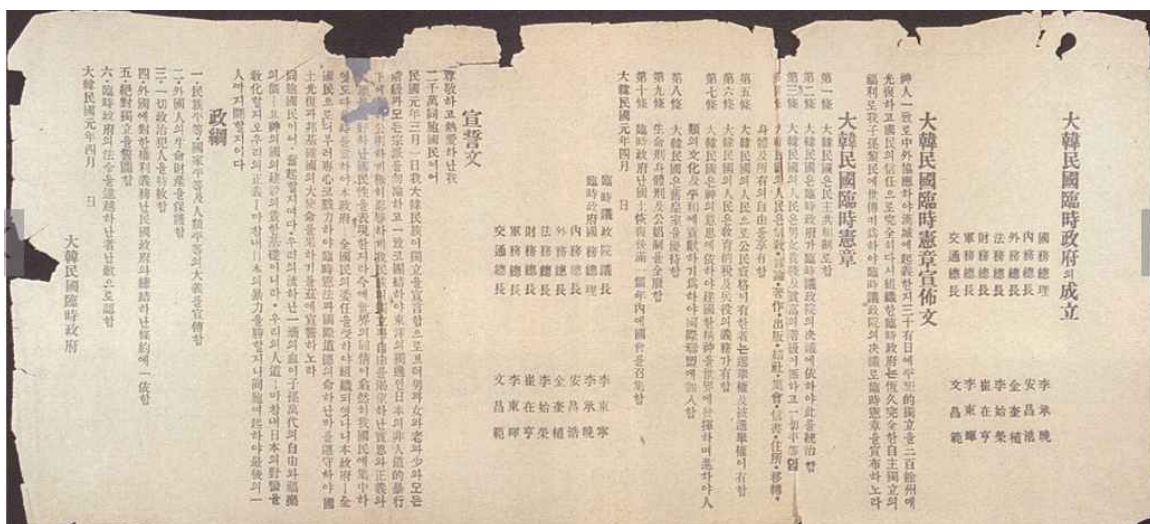 大韓民國臨時政府의成立
國務總理 李承晩
內務總長 安昌浩
外務總長 金奎植
法務總長 李始榮
財務總長 崔在亨
軍務總長 李東輝
交通總長 文昌範
大韓民國臨時憲章宣佈文
神人一致로中外協應하야漢城에起義한지三十有日에平和的獨立을三百餘州에
光復하고國民의信任으로完全히다시組織한臨時政府는恒久完全한自主獨立의
福利로我子孫黎民에世傳키爲하야臨時議政院의決議로臨時憲章을宣布하노라
大韓民國臨時憲章
第一條 大韓民國은民主共和制로함
第二條 大韓民國은臨時政府가臨時議政院의決議에依하야此를統治함
第三條 大韓民國의人民은男女貴賤及貧富의階級이無하고一切平等임
民國의人民은信敎・言論・著作・出版・結社・集會・信書・住所・移轉・
身體及所有의自由를享有함
第五條 大韓民國의人民으로公民資格이有한者는選擧權及被選擧權이有함
第六條 大韓民國의人民은敎育納稅及兵役의義務가有함
第七條 大韓民國은神의意思에依하야建國한精神을世界에發揮하며進하야人
類의文化及平和에貢獻하기爲하야國際聯盟에加入함
第八條 大韓民國은舊皇室을優待함
第九條 生命刑身體刑及公娼制를全廢함
第十條 臨時政府난國土恢復後滿一個年內에國會를召集함
大韓民國元年四月 日
臨時議政院議長 李東寧
臨時政府國務總理 李承晩
內務總長 安昌浩
外務總長 金奎植
法務總長 李始榮
財務總長 崔在亨
軍務總長 李東輝
交通總長 文昌範
宣誓文
尊敬하고熱愛하난我
二千萬同胞國民이어
民國元年三月一日我大韓民族이獨立을宣言함으로브터男과女와老와少와모든
階級과모든宗派를勿論하고一致로團結하야東洋의獨逸인日本의非人道的暴行
下에 公明하게 極히忍辱하게我民族의獨立과自由를渴望하난實思와正義와
國民性을表現한지라今에世界의同情이翕然히我國民에集中하
엿도다 本政府一全國民의委任을受하야組織되엿나니本政府一全
國民으로더부러專心코戮力하야臨時憲法과國際道德의命하난바를遵守하야國
土光復과邦基確國의大使命을果하기를玆에宣誓하노라
同胞國民이어・奮起할지어다・우리의流하난一滴의血이子孫萬代의自由와福樂
의價一요神의國의建設의貴한基礎이니라・우리의人道一마참내日本의野蠻을
敎化할지오우리의正義一마참내日本의暴力을勝할지니同胞여起하야最後의一
人까지鬪할지어다
政綱
一・民族平等・國家平等及人類平等의大義를宣傳함
二・外國人의生命財産을保護함
三・一切政治犯人을特赦함
四・外國에對한權利義務난民國政府와締結하난條約에一依함
五・絶對獨立을誓圖함
六・臨時政府의法令을違越하난者난敵으로認함
大韓民國元年四月 日
大韓民國臨時政府